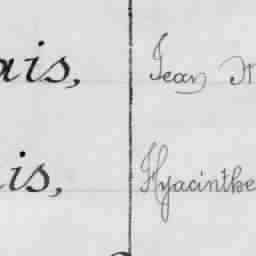 ais, Jean M
is, Hyacinthe